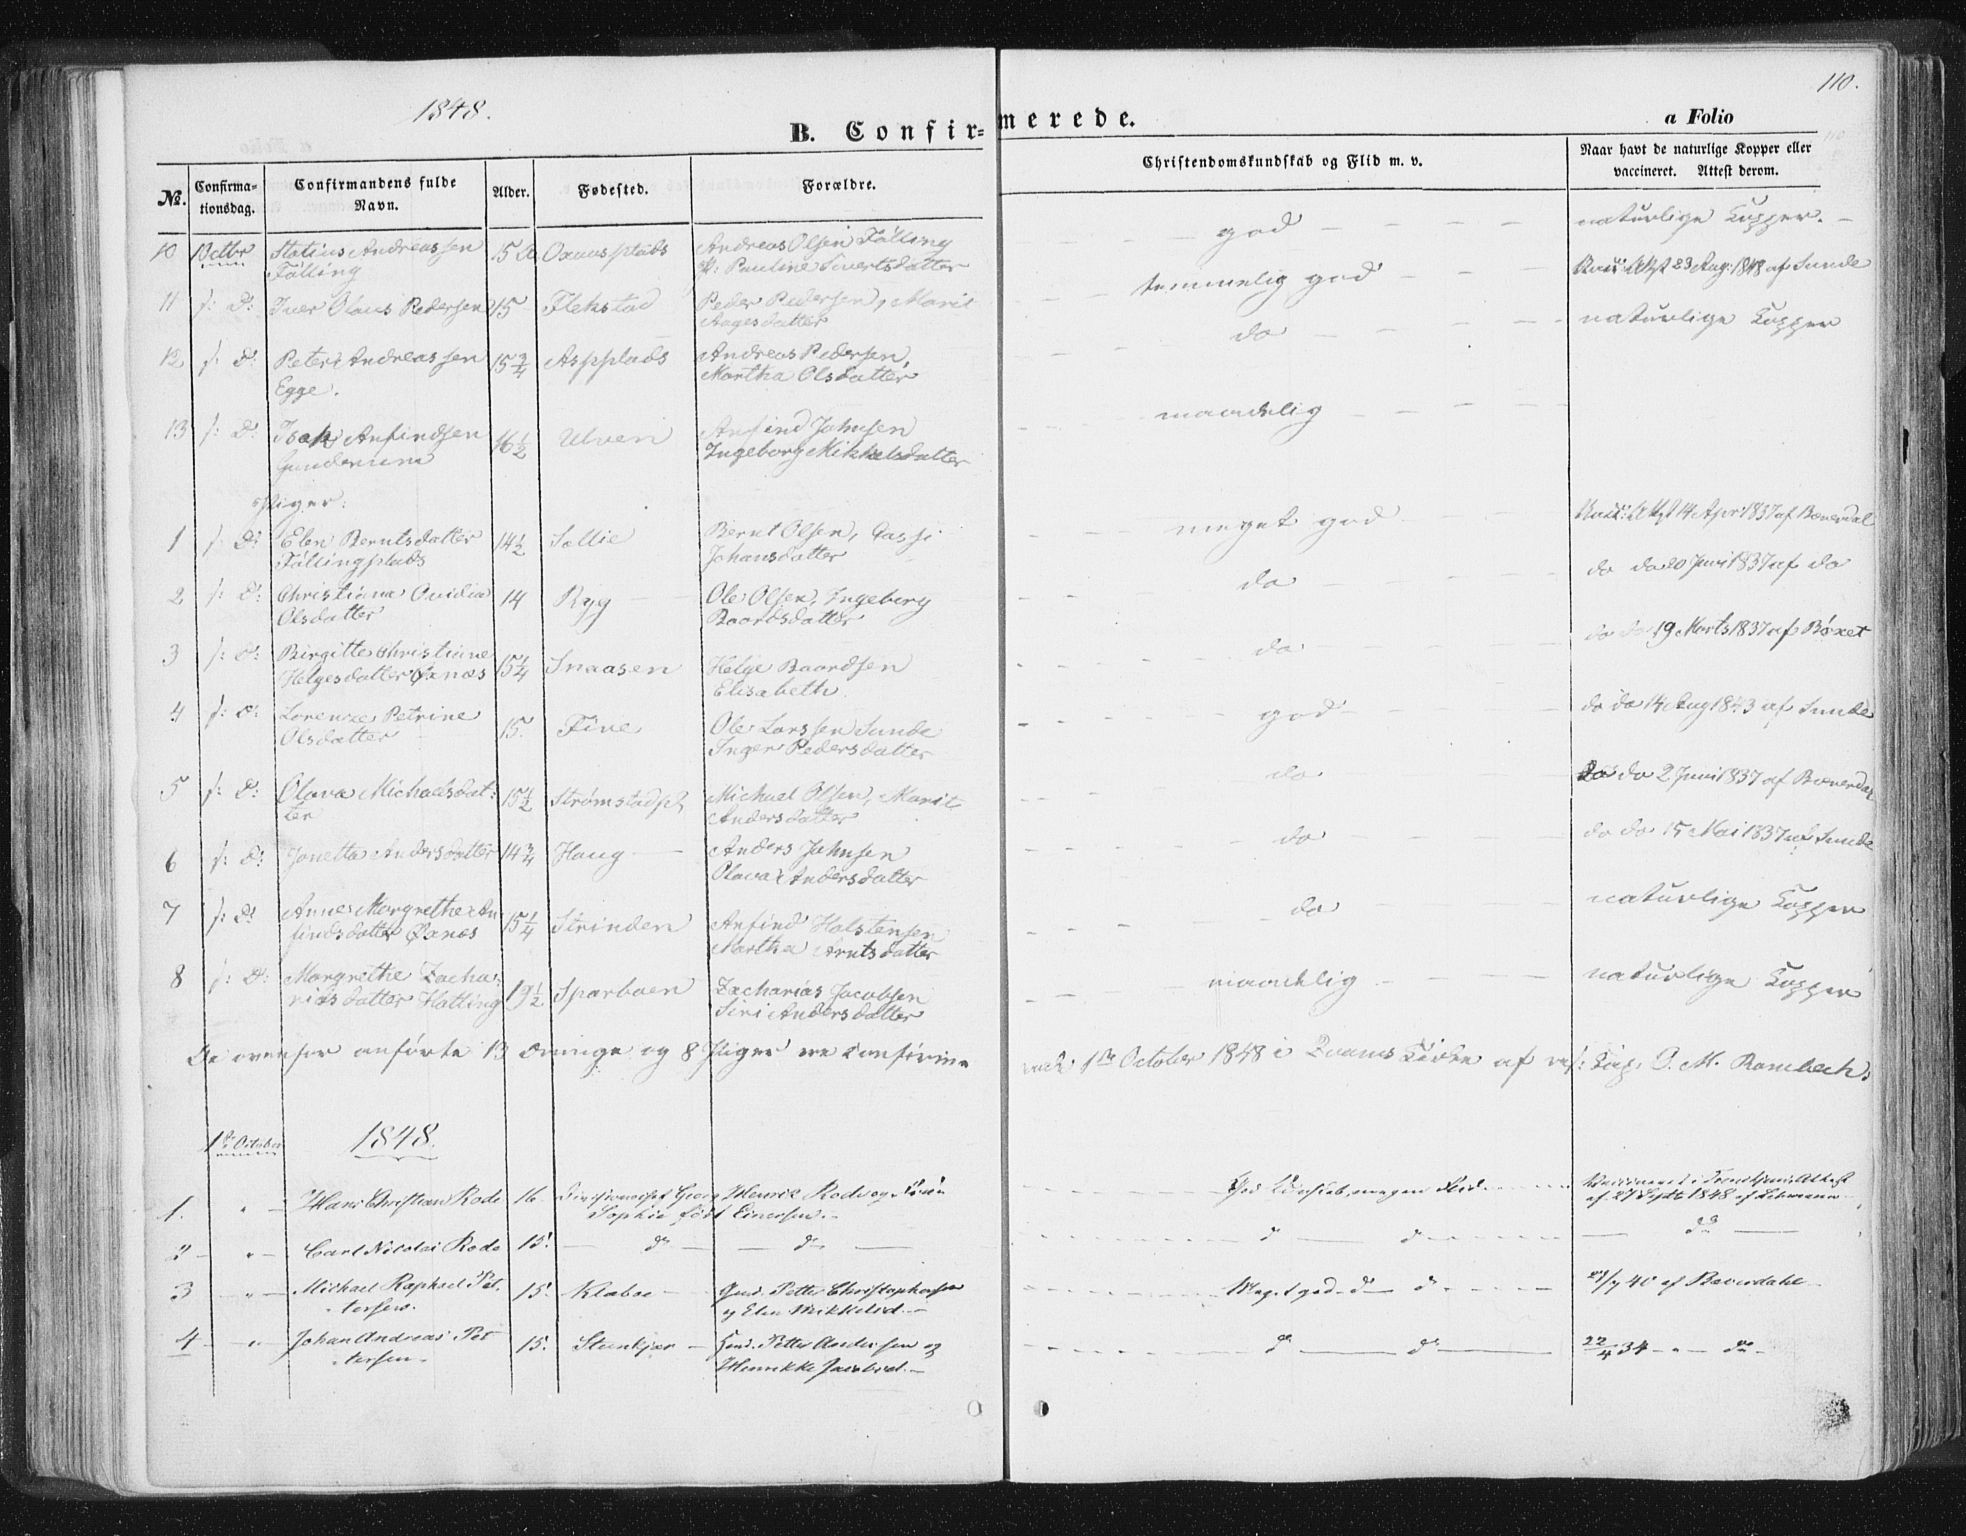 110.
1848.
B. Confirmerede.
a Folio
No. Confirma-tionsdag. Confirmandens fulde Navn. Alder. Fødested. Forældre. Christendomskundskab og Flid m. v. Naar havt de naturlige Kopper eller vaccineret. Attest derom.
10 1 Octbr Statius Andreassen 15 Oxnæsplads Andreas Olsen Følling god naturlige Kopper.
Følling Pauline Sivertsdatter
11 s: D: Iver Olaus Pedersen 15 Flekstad Peder Pedersen, Marit temmelig god 23 Aug: 1848 af Sunde
Aagesdatter
12 s: D: Peter Andreassen 15 3/4 Aspplads Andreas Pedersen, do naturlige Kopper
Egge. Martha Olsdatter
13 s: D: Isak Anfindsen 16 1/2 Ulven Anfind Johnsen maadelig
Ingeborg Mikkelsdatter
Piger:
1 s: D: Elen Berntsdatter 14 1/2 Sollie Bernt Olsen, meget god Vacc: Attest 14 Apr: 1837 af Bæverdal
Føllingplads Johansdatter
2 s: D: Christiana Ovidia 14 Ryg Ole Olsen, Ingeborg do do do 20 Juni 1837 af do
Olsdatter Baardsdatter
3 s: D: Birgitte Christiane 15 1/4 Snaasen Helge Baardsen do do do 19 Marts 1837 af
Helgesdatter Øxnæs Elisabeth
4 s: D: Lorentze Petrine 15. Five Ole Larssen Sunde god do do 14 Aug 1843 af Sunde
Olsdatter Inger Pedersdatter
5 s: D: Olava Michaelsdat- 15 1/2 Strømstadpl. Michael Olsen, Marit do do do 2 Juni 1837 af Bæverdal
ter Andersdatter
6 s: D: Jonetta Andersdatter 14 3/4 Haug Anders Johnsen do do do 15 Mai 1837 af Sunde
Olava Andersdatter
7 s: D: Anne Margrethe An 15 1/4 Strinden Anfind Holstensen do naturlige Kopper
findsdatter Øxnæs Martha Arntsdatter
8 s: D: Margrethe Zacha- 19 1/2 Sparboen Zacharias Jacobsen maadelig naturlige Kopper
riasdatter Hatling Siri Andersdatter
De ovenfor anførte 13 Drenge og 8 Piger ere Confirme rede 1ste October 1848 i Qvams Kirke af res: Cap. O. M. Rambech.
1ste October 1848.
1. " Hans Christian Rode 16. Georg Henrik Rode og God Kundskab, megen Flid
Sophie født Einersen. af 27 Septbr 1848 af Lehmann
2 " Carl Nicolai Rode 15. do do do do do
3 " Michael Raphael Pet- 15. Klæboe Petter Christophersen Meget god do do /7 40 af Bæverdahl
tersen. og Elen Mikkelsd.
4 " Johan Andreas Pet 15. Steenkjær Petter Andersen og do do 22/4 34 " do
tersen. Henrikke Jacobsd.